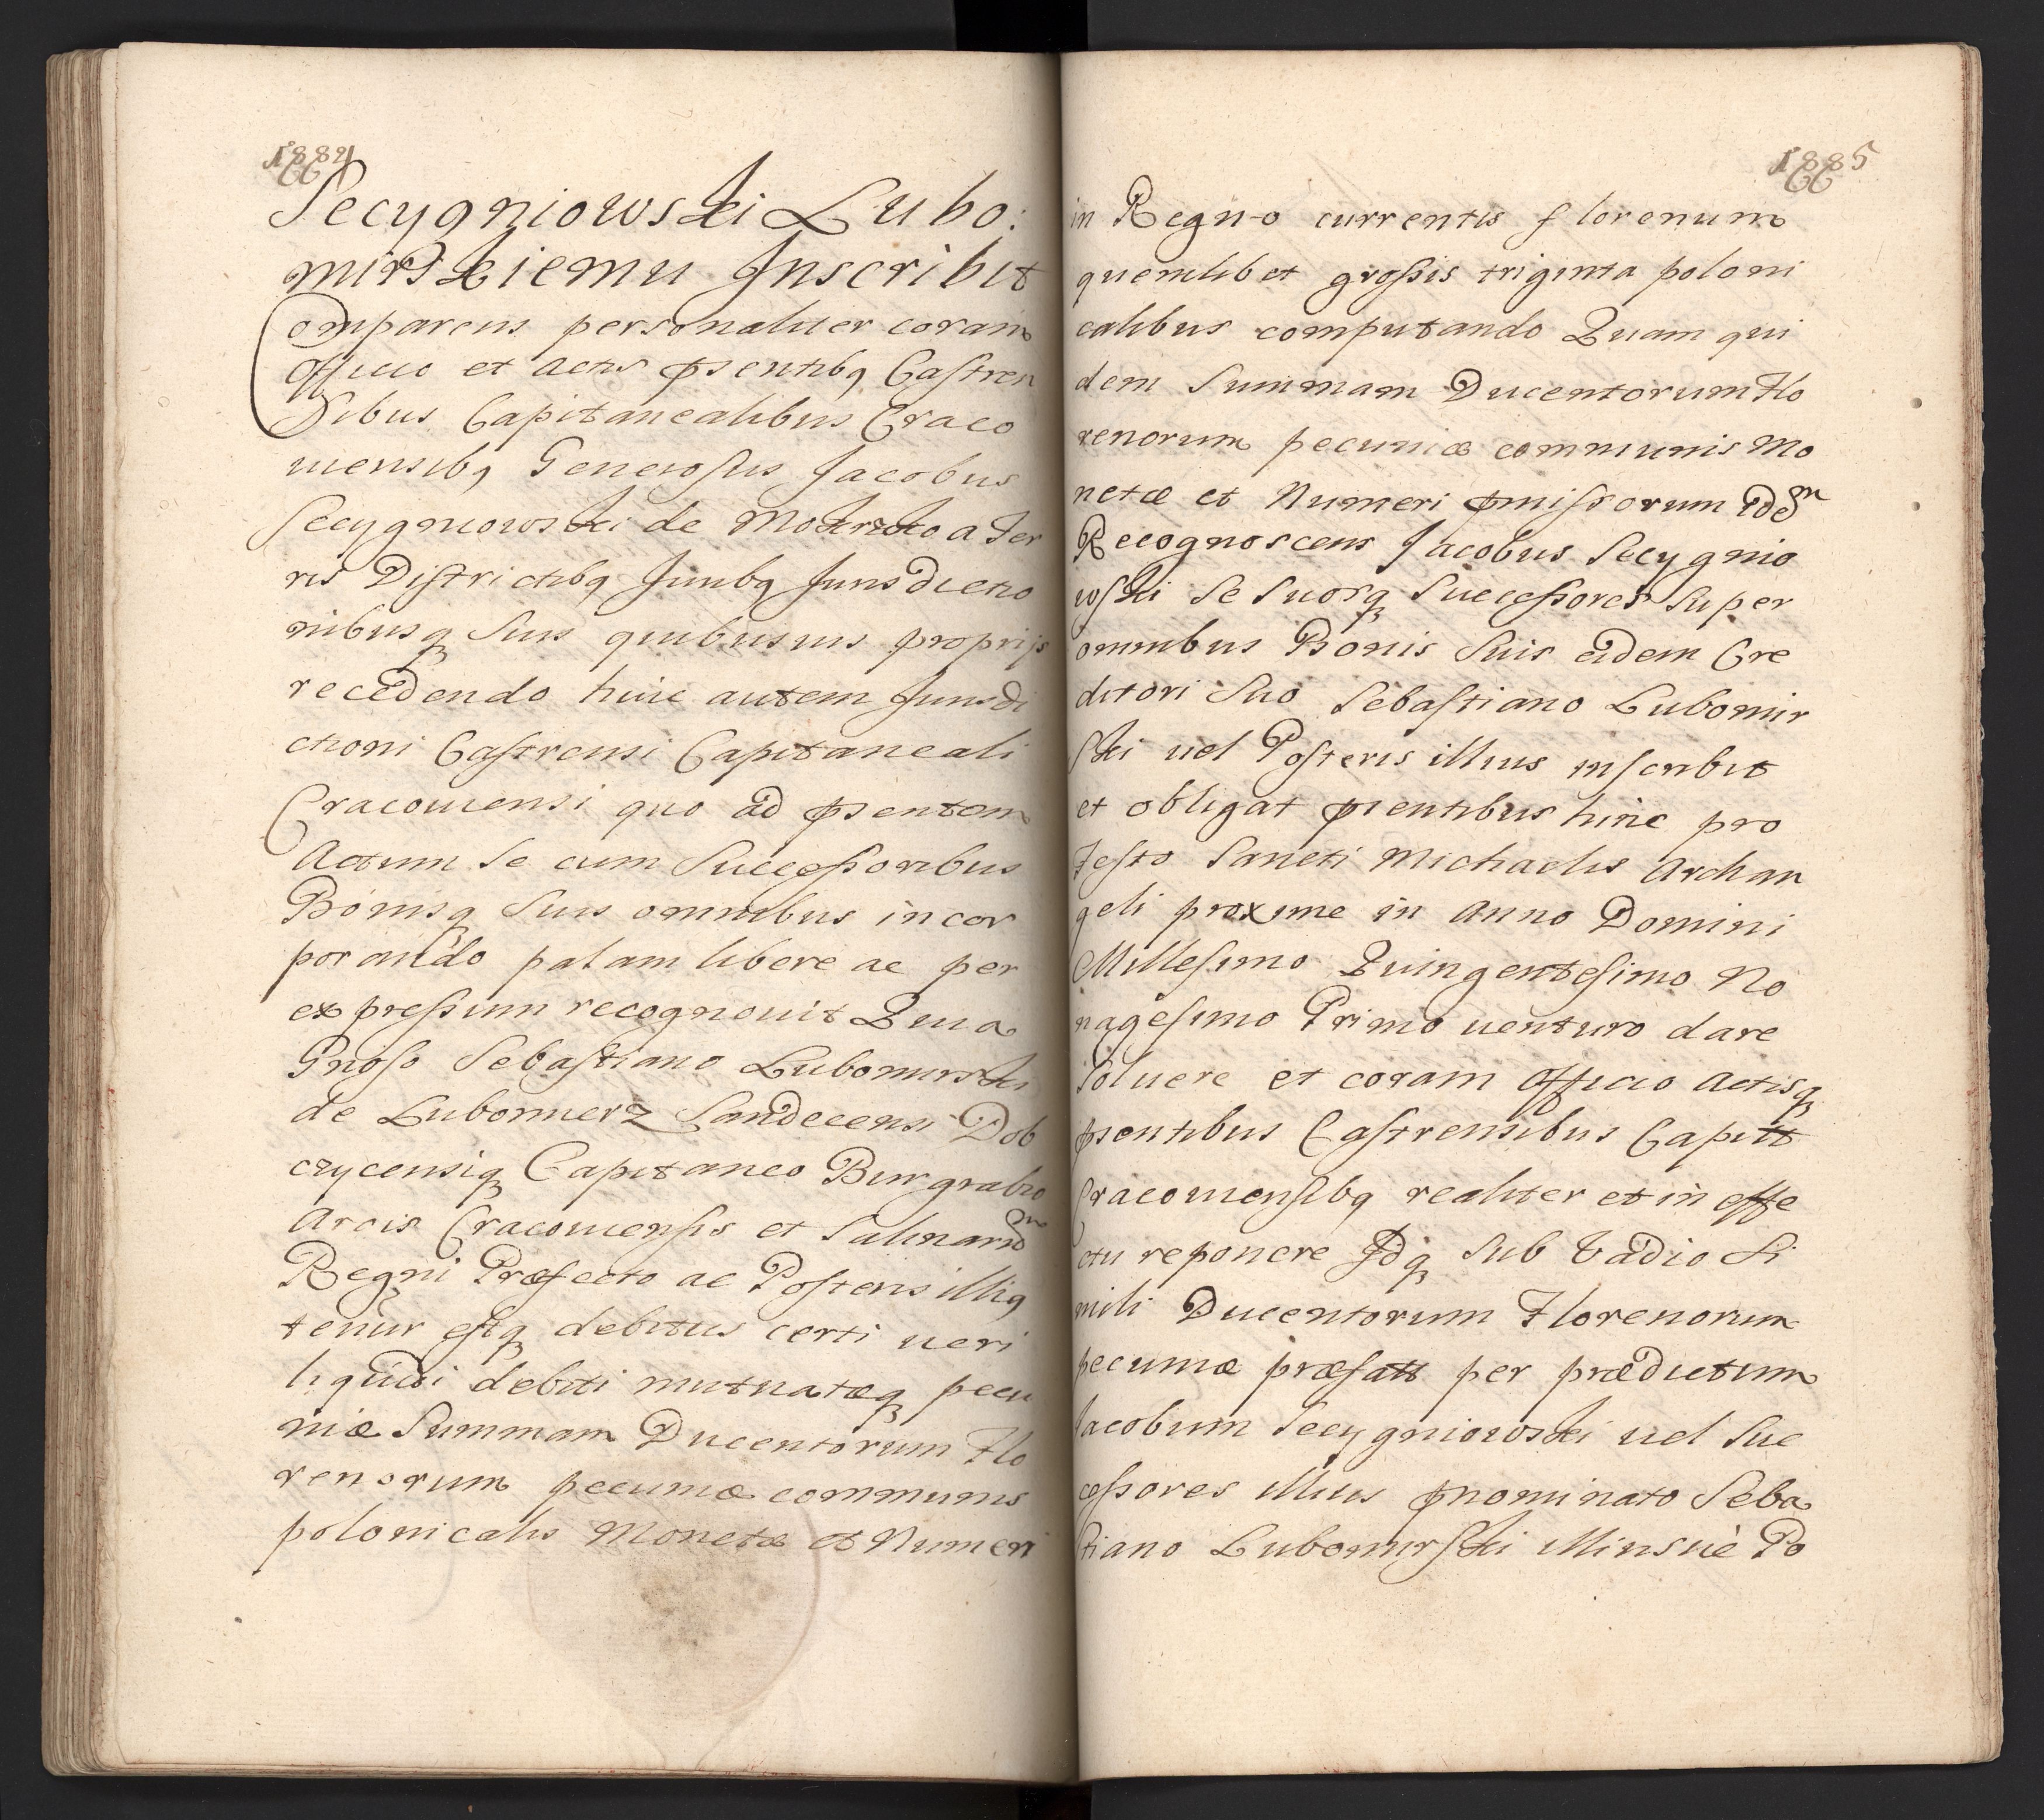 1884
Secygniowski Lubo:
mirskiemu Inscribit
Comparens personaliter coram
officio et actis psentibq Castren
Sibus Capitanealibus Craco
uiensibq Generosus Jacobus
Secygniowski de a Ter
ris Districtibq Juribq Jurisdictio
nibusq suis quibusuis proprijs
recedendo huic autem Jurisdi
ctioni Castrensi Capitaneali
Cracouiensi quo ad psentem
Actum se cum Successoribus
Bonisq Suis omnibus incor
porando palam libere ac per
expressum recognouit Quia
Gnoso Sebastiano Lubomirski
de Lubomierz Sandecensi Dob
czycensiq Capitaneo Burgrabio
Arcis Cracouiensis et Salinarum
Regni Præfecto ac Posteris illiq
tenur estq debitus certi ueri
liquidi debiti mutuatæq pecu
niæ Summam Ducentorum Flo
renorum pecuniæ communis
polonicalis Monetæ et Numeri
1885
in Regno currentis florenum
quemlibet grossis triginta poloni
calibus computando Quam qui
dem Summam Ducentorum Flo
renorum pecuniæ communis Mo
netæ et Numeri pmissorum Idem
Recognoscens Jacobus Secygnio
wski Se Suosq Successores Super
omnibus Bonis Suis eidem Cre
ditori Suo Sebastiano Lubomir
ski uel Posteris illius inscribit
et obligat psentibus hinc pro
Festo Sancti Michaelis Archan
geli proxime in Anno Domini
Millesimo Quingentesimo No
nagesimo Primo uenturo dare
Soluere et coram Officio Actisq
psentibus Castrensibus Capitt
Cracouiensibq realiter et in effe
ctu reponere Idq Sub Vadio Si
mili Ducentorum Florenorum
pecuniæ præfatt per prædictum
Jacobum Secygniowski uel Suc
cessores illius pnominato Seba
stiano Lubomirski illiusuè Po